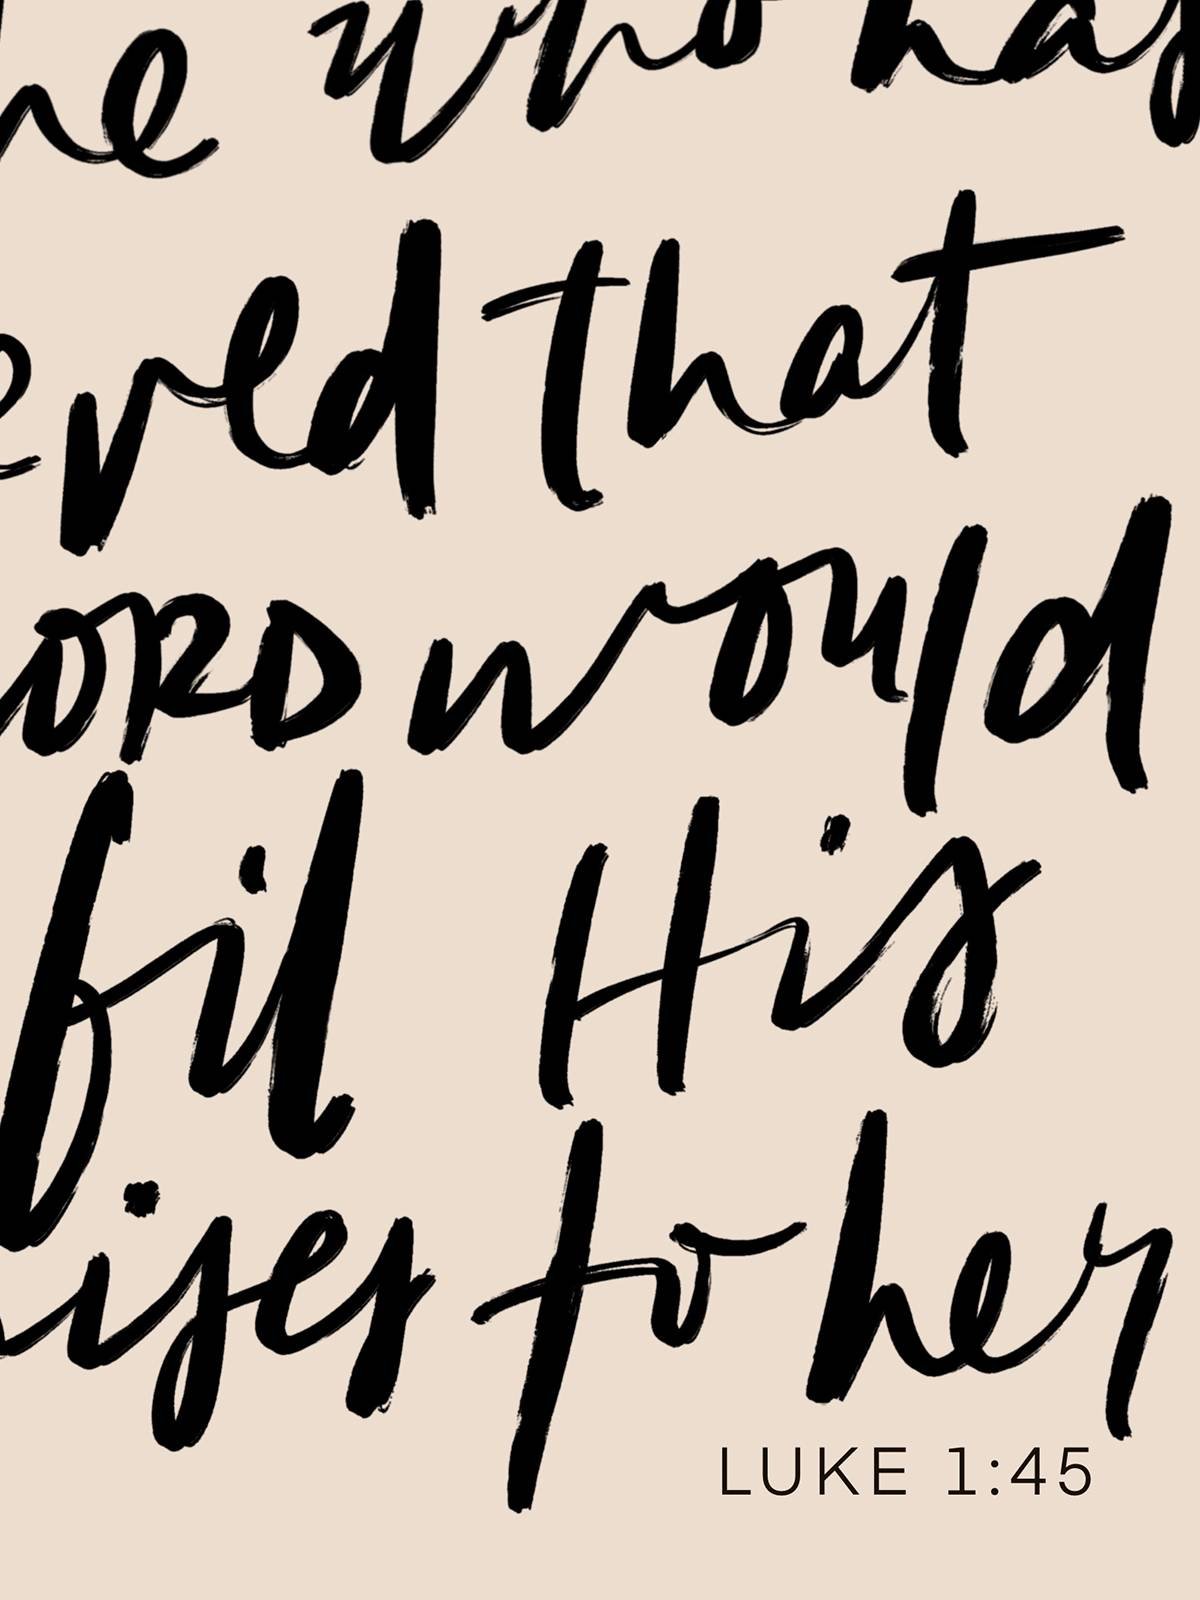 he who has
eved that
ORD would
fil His
ises to her
LUKE 1:45